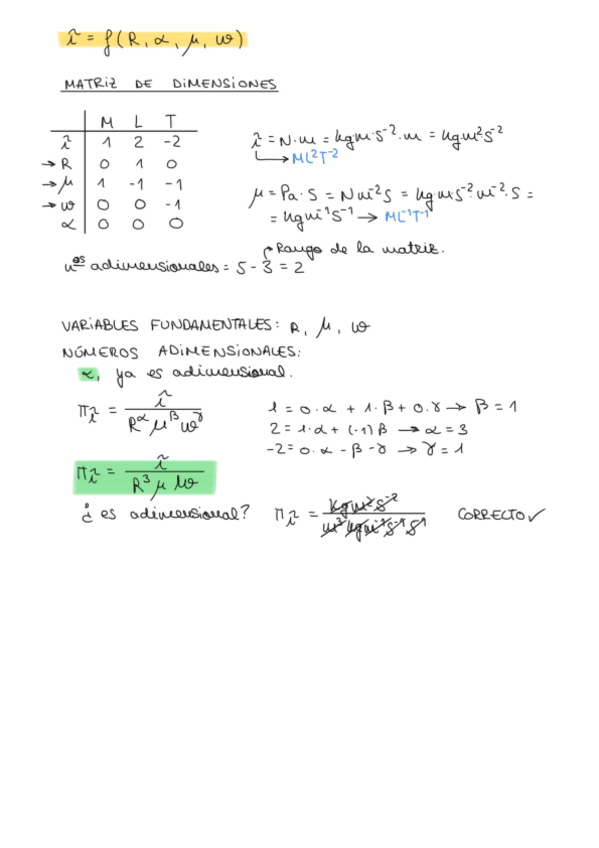 τ̃ = f(R, α, μ, ω)
MATRIZ DE DIMENSIONES
M L T
τ̃ 1 2 -2
→ R 0 1 0
→ μ 1 -1 -1
→ ω 0 0 -1
α 0 0 0
τ̃ = N·m = kg·m·s⁻²·m = kg m² s⁻²
→ ML²T⁻²
μ = Pa·s = N m⁻² s = kg·m·s⁻²·m⁻²·s =
= kg m⁻¹ s⁻¹ → ML⁻¹T⁻¹
Rango de la matriz.
nºs adimensionales = 5 - 3 = 2
VARIABLES FUNDAMENTALES: R, μ, ω
NÚMEROS ADIMENSIONALES:
α, ya es adimensional.
π τ̃ = τ̃ / R^α μ^β ω^γ
1 = 0·α + 1·β + 0·γ → β = 1
2 = 1·α + (-1) β → α = 3
-2 = 0·α - β - γ → γ = 1
π τ̃ = τ̃ / R³ μ ω
¿ es adimensional? π τ̃ = kg m² s⁻² / m³ kg m⁻¹ s⁻¹ s⁻¹ CORRECTO ✓